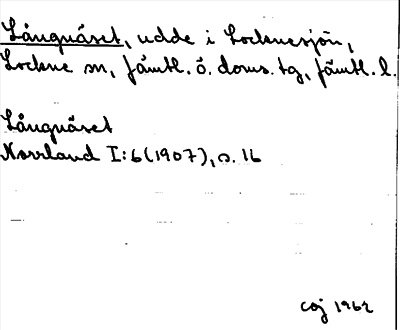 Långnäset, udde i Locknesjön,
Lockne sn, Jämtl. ö. doms. tg, Jämtl. l.
Långnäset
Norrland I:6(1907), s. 16
CGJ 1962